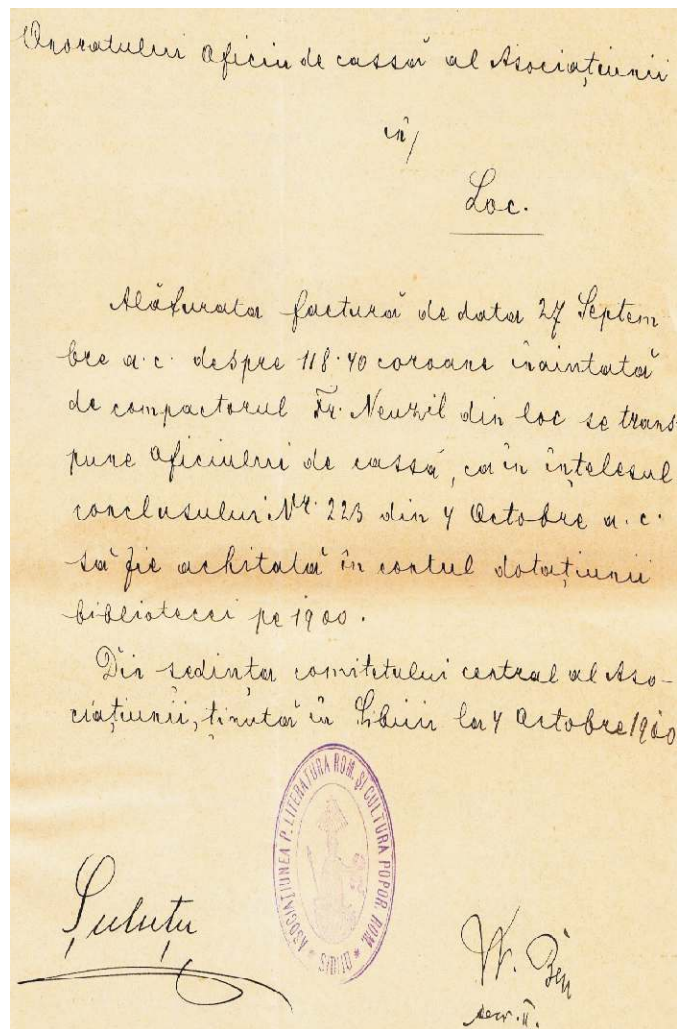 Onoratului Oficiu de cassă al Asociațiunii
în/
Loc.
Alăturata factură de data 27 Septem
bre a.c. despre 118·40 coroane înaintată
de compactorul Fr. Neuzil din loc se trans-
pune Oficiului de cassă, ca în înțelesul
conclusului Nr. 223 din 4 Octobre a.c.
să fie achitată în contul dotațiunii
bibliotecei pe 1900.
Din sedința comitetului central al Aso-
ciațiunii, ținută în Sibiiu la 4 Octobre 1900
ASOCIAȚIUNEA P. LITERATURA ROM. ȘI CULTURA POPOR. ROM.
* SIBIIU *
Șuluțu
secr. II.